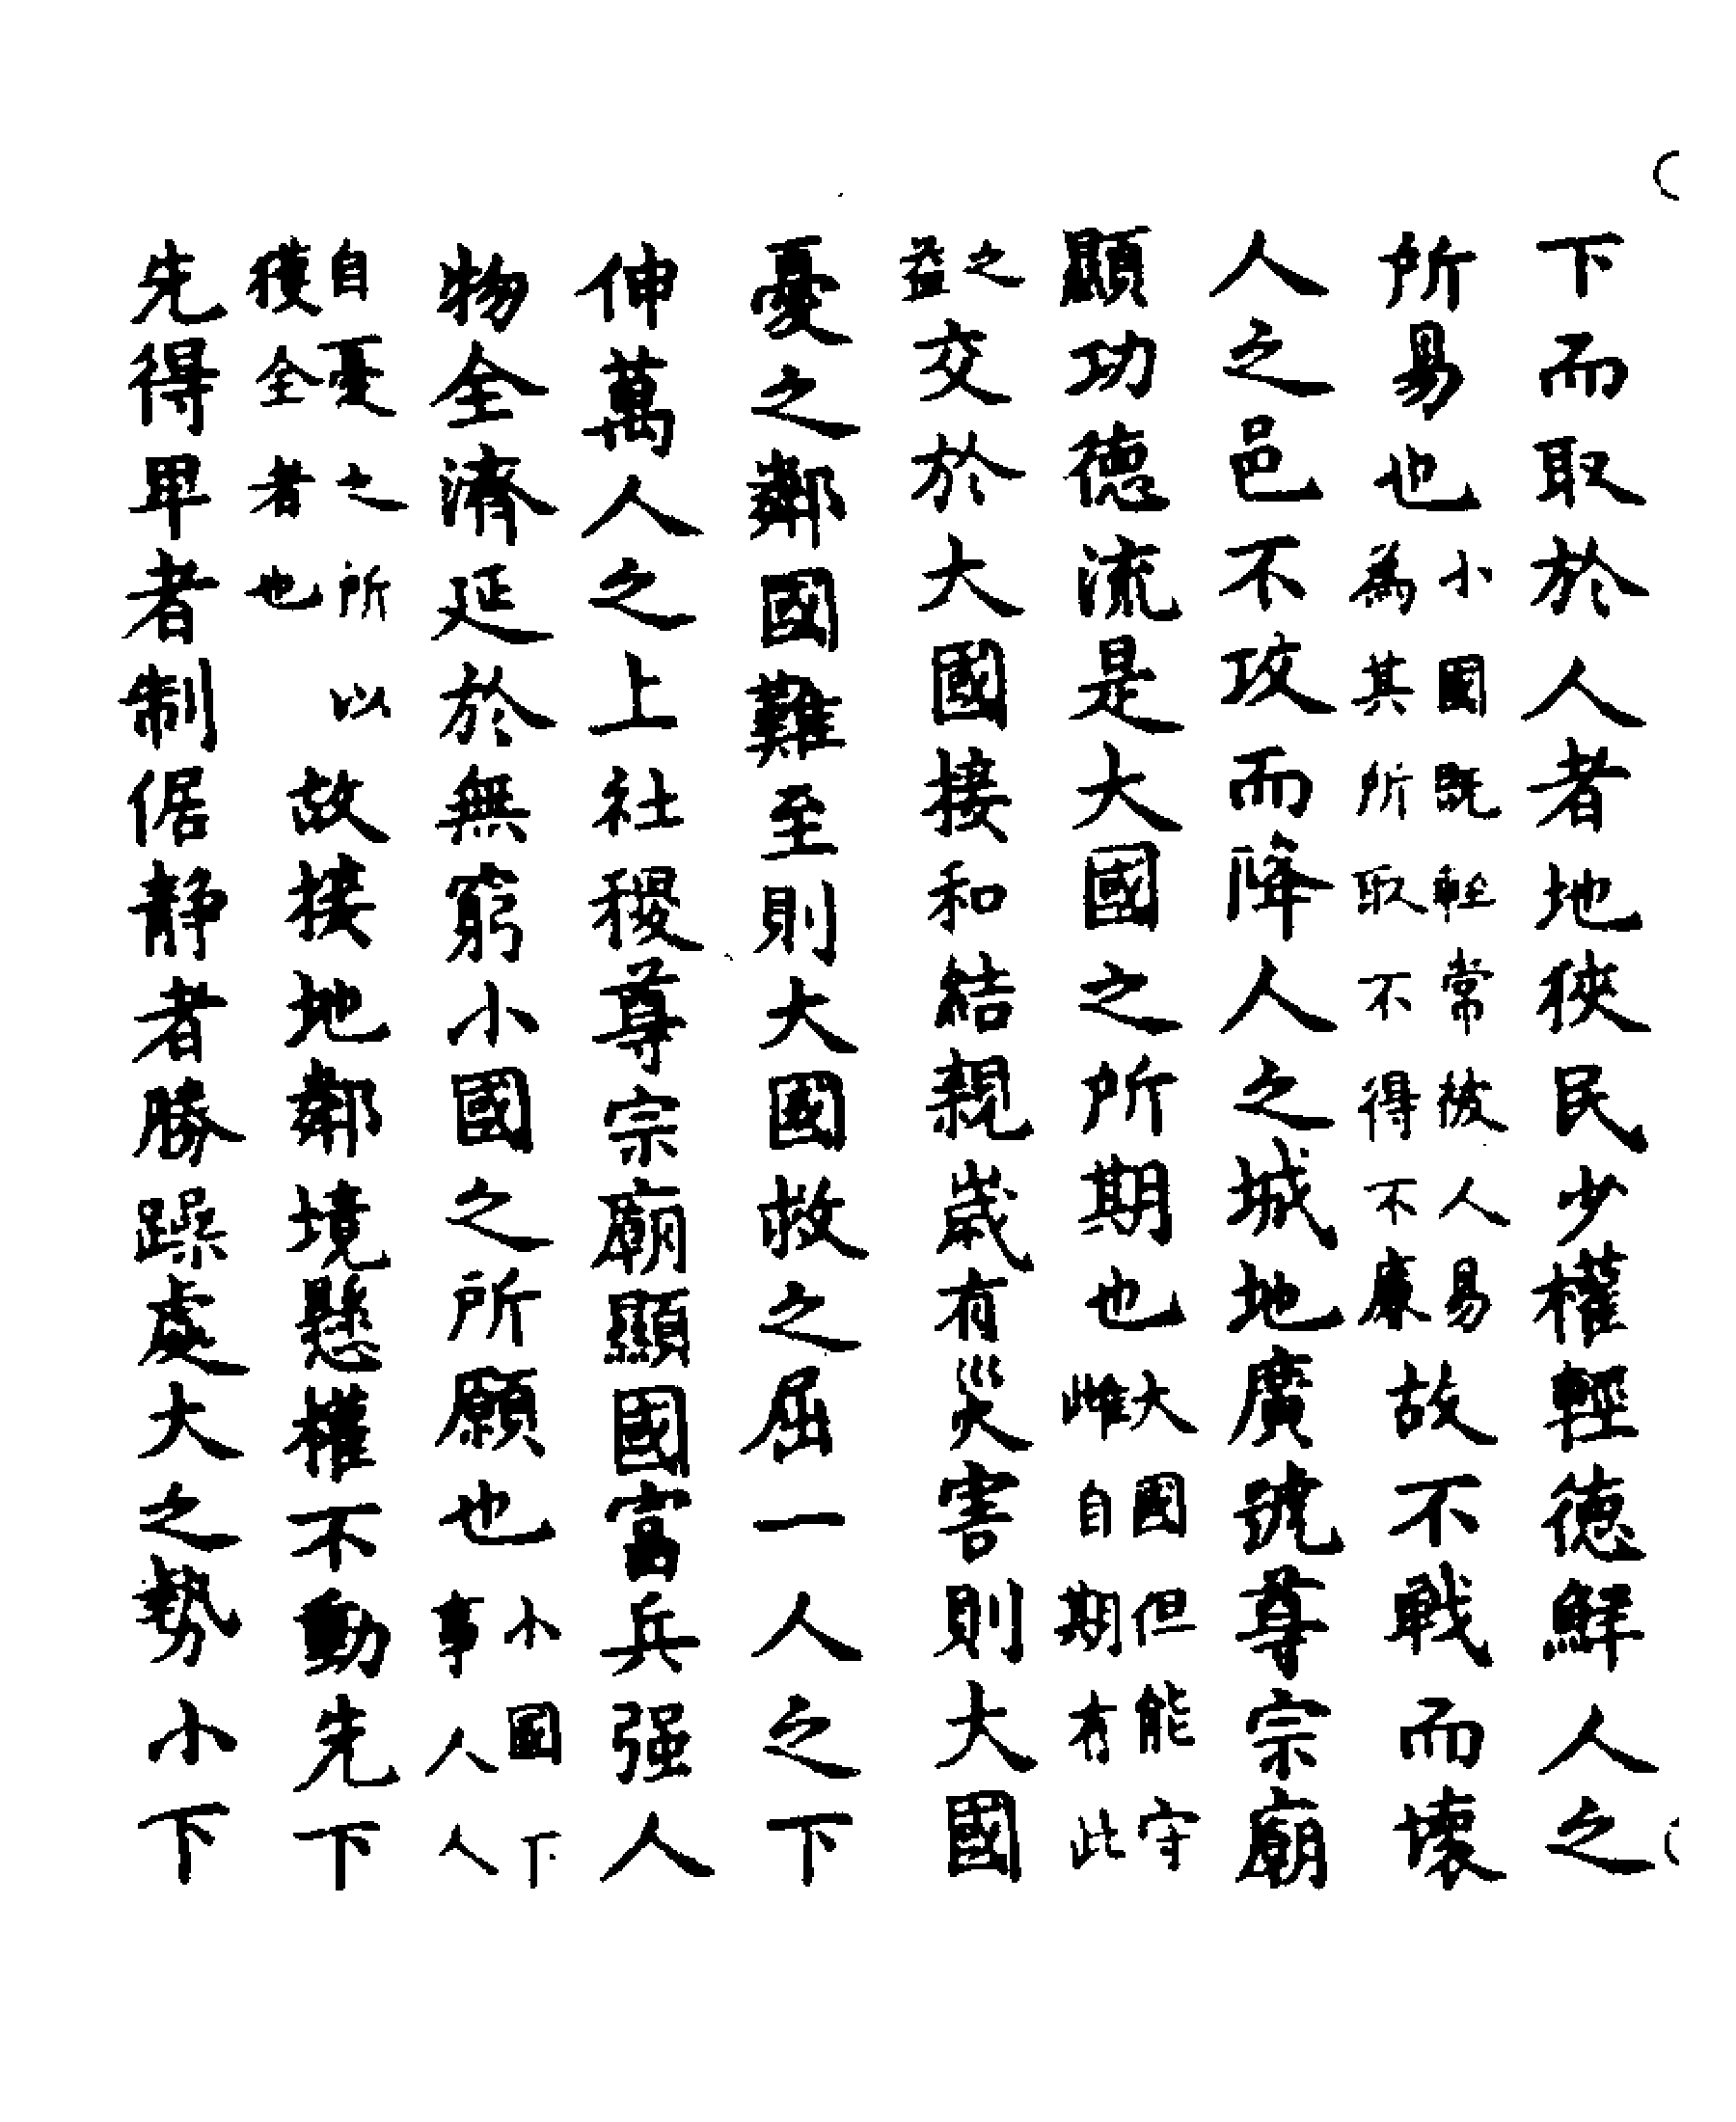 下而取於人者地狹民少權輕德鮮人之
所易也小國既輕常被人易為其所取不得不廉故不戰而壞
人之邑不攻而降人之城地廣號尊宗廟
顯功德流是大國之所期也大國但能守雌自期有此
之益交於大國接和結親歲有災害則大國
憂之鄰國難至則大國救之屈一人之下
伸萬人之上社稷尊宗廟顯國富兵强人
物全濟延於無窮小國之所願也小國下事人人
自憂之所以獲全者也故接地鄰境懸權不動先下
先得卑者制倨静者勝躁處大之勢小下